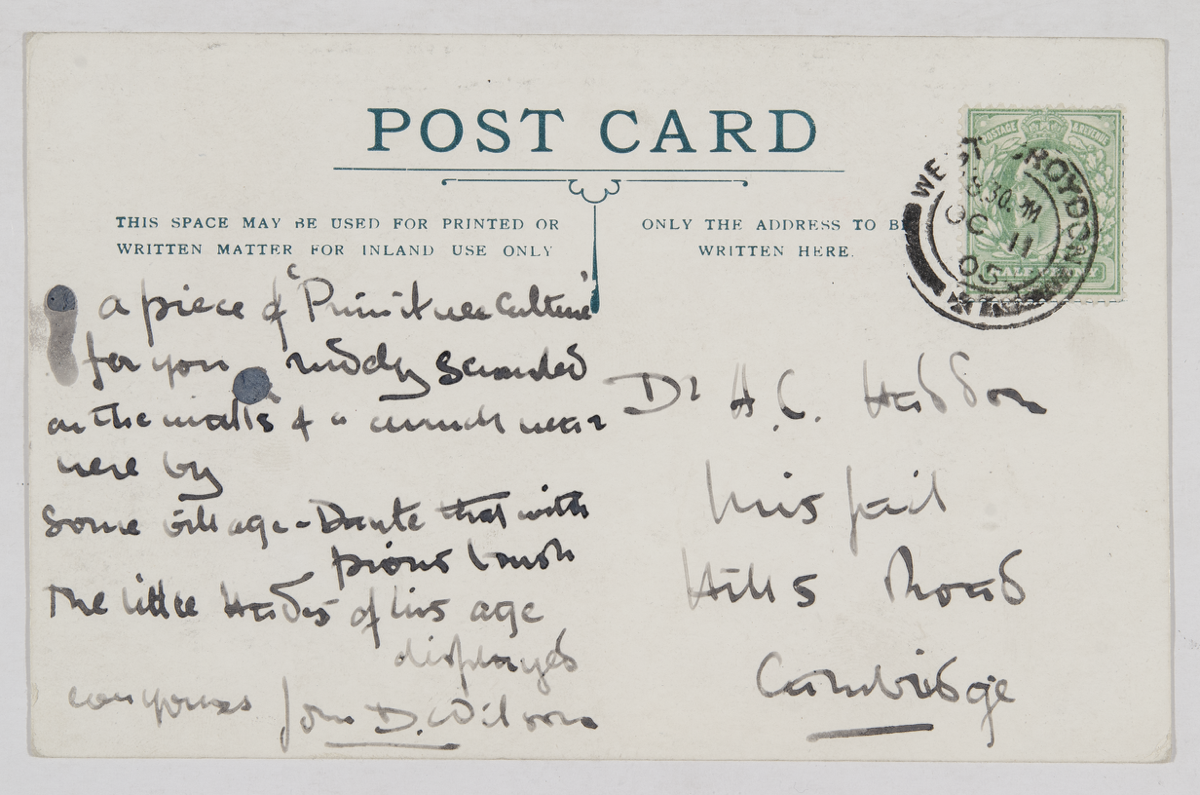 POST CARD
THIS SPACE MAY BE USED FOR PRINTED OR
WRITTEN MATTER FOR INLAND USE ONLY
ONLY THE ADDRESS TO BE
WRITTEN HERE.
POSTAGE REVENUE
HALFPENNY
WEST CROYDON
8.30 PM
OC 11
05
a piece of "Primitive Culture"
for you rudely scrawled
on the walls of a church near
here by
Some village-Dante that with
pious brush
The little Hades of his age
displayed
ever yours John D. Wilson
Dr A.C. Haddon
Innisfail
Hills Road
Cambridge